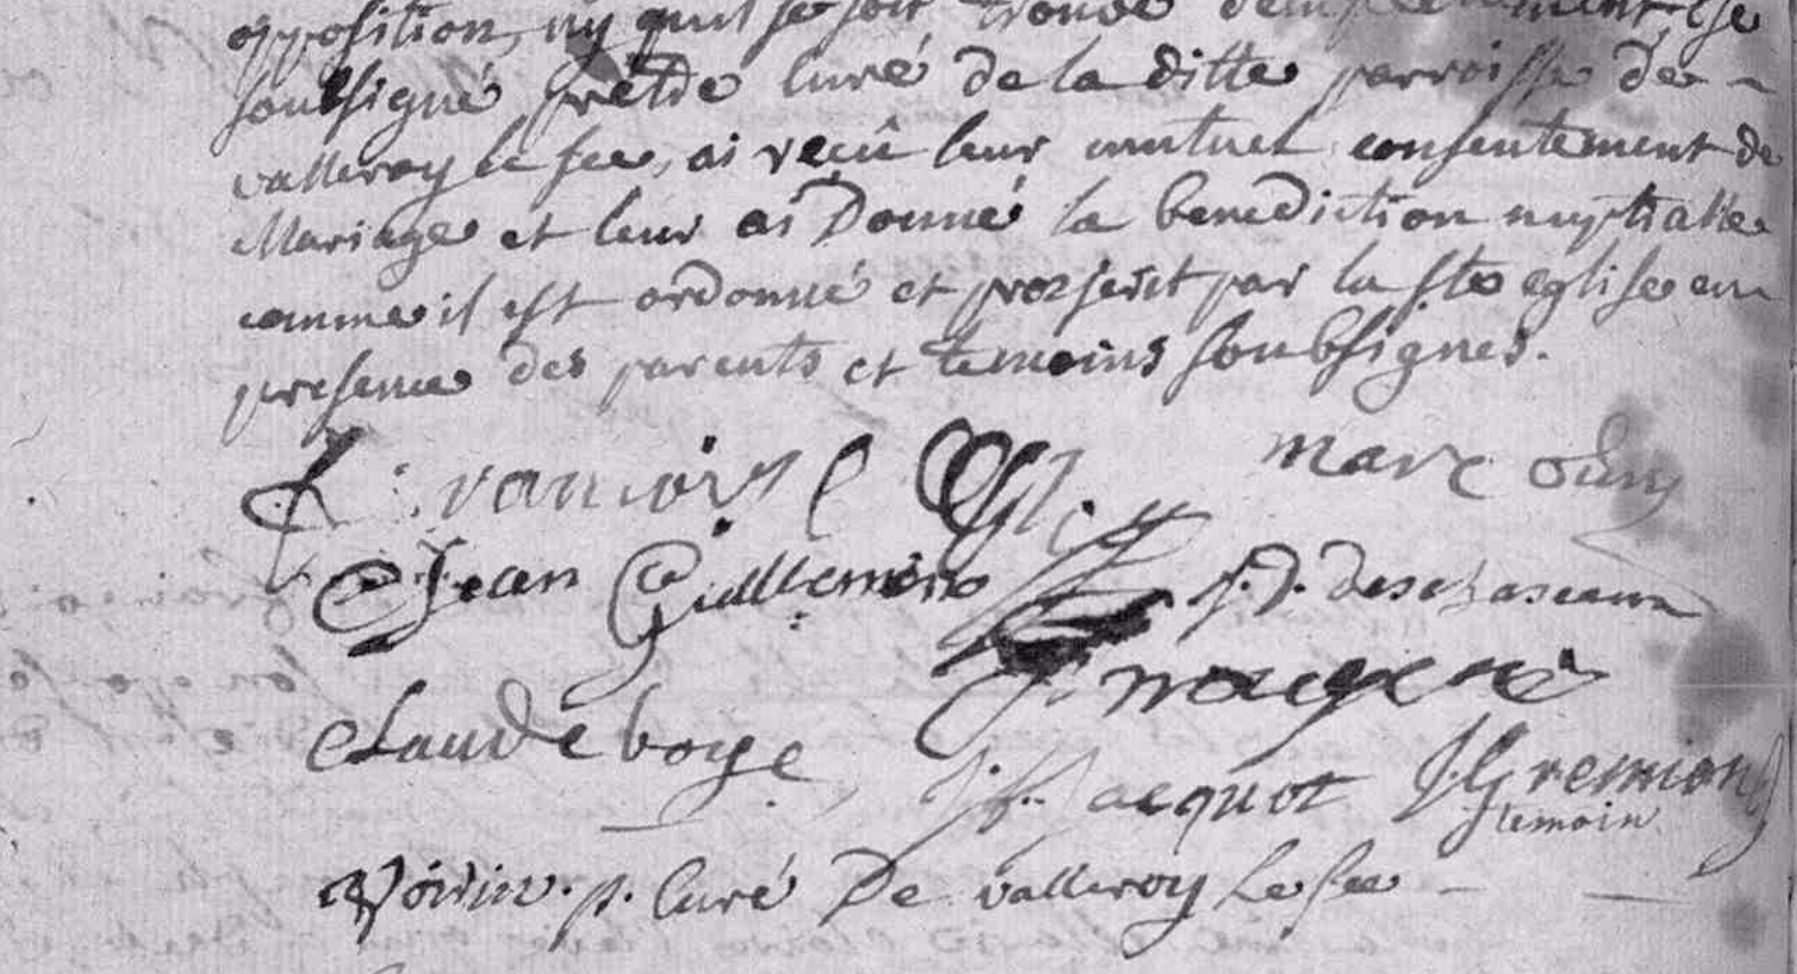 opposition, ny quil se soit trouvé d'empechement, je
soubsigné prêtre curé de la ditte parroisse de
valleroy le sec, ai reçû leur mutuel consentement de
Mariage et leur ai Donné la benediction nuptialle
comme il est ordonné et prescrit par la ste eglise en
presence des parents et temoins soubsignes.
marc
Jean Guillemin
J. J. deschaseaux
claude boyé
J. f. Jacquot J. G remiong
temoin
Voirin. p. Curé De valleroy Le sec